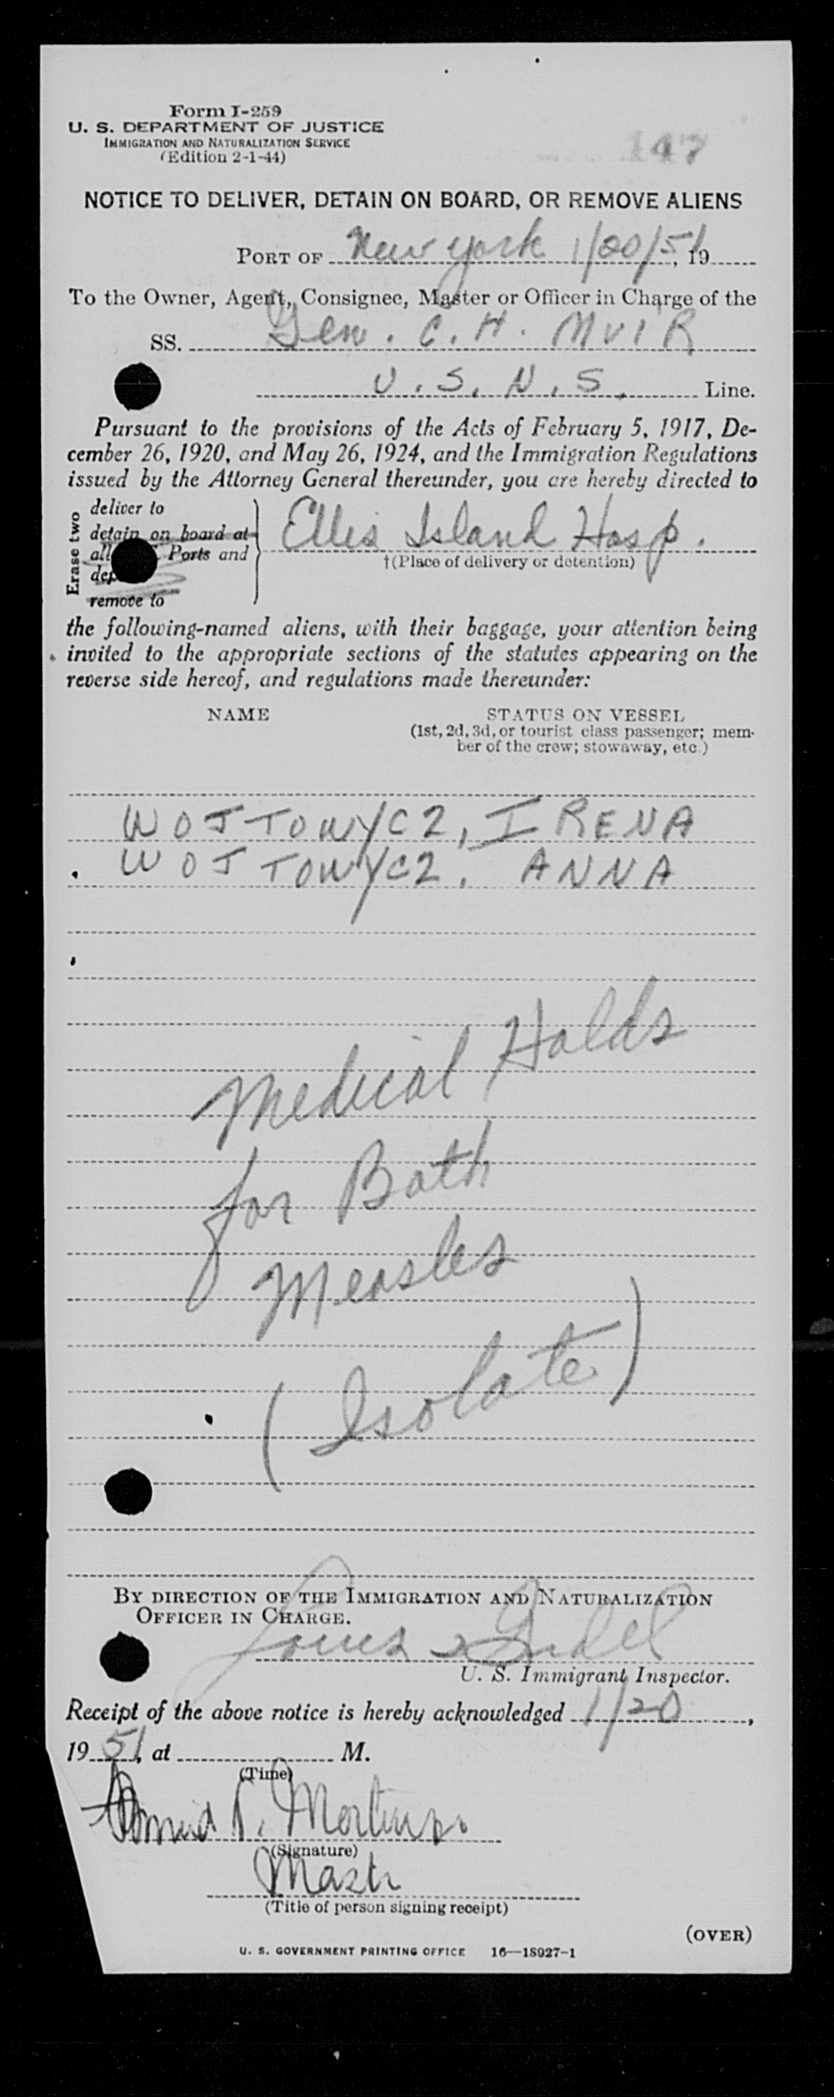 Form I-259
U. S. DEPARTMENT OF JUSTICE
IMMIGRATION AND NATURALIZATION SERVICE
(Edition 2-1-44)
147
NOTICE TO DELIVER, DETAIN ON BOARD, OR REMOVE ALIENS
PORT OF New York 1/20/51, 19
To the Owner, Agent, Consignee, Master or Officer in Charge of the
SS. Gen. C. H. MUIR
U. S. N. S. Line.
Pursuant to the provisions of the Acts of February 5, 1917, De-
cember 26, 1920, and May 26, 1924, and the Immigration Regulations
issued by the Attorney General thereunder, you are hereby directed to
Erase two
deliver to
detain on board at
all Ports and
dep
remove to
Ellis Island Hosp.
†(Place of delivery or detention)
the following-named aliens, with their baggage, your attention being
invited to the appropriate sections of the statutes appearing on the
reverse side hereof, and regulations made thereunder:
NAME
STATUS ON VESSEL
(1st, 2d, 3d, or tourist class passenger; mem-
ber of the crew; stowaway, etc.)
WOJTOWYCZ, IRENA
WOJTOWYCZ, ANNA
Medical Holds
for Both
Measles
(Isolate)
BY DIRECTION OF THE IMMIGRATION AND NATURALIZATION
OFFICER IN CHARGE.
Louis
U. S. Immigrant Inspector.
Receipt of the above notice is hereby acknowledged 1/20,
19 51, at M.
(Time)
(Signature)
(Title of person signing receipt)
(OVER)
U. S. GOVERNMENT PRINTING OFFICE 16—18927-1